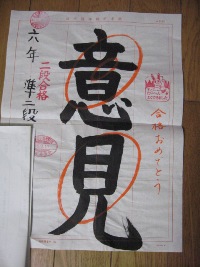 意見
合格おめでとう
二段合格
六年 準二段